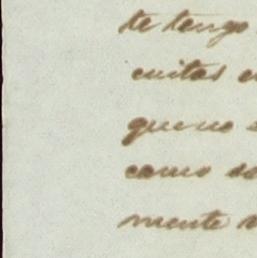 te tengo
cuitas
que no
como
mente